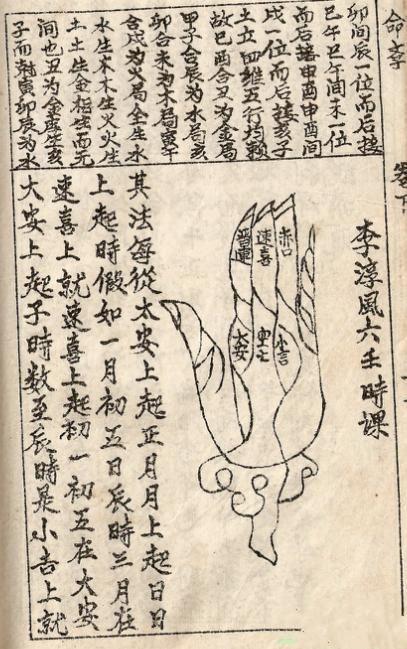 卷下
卯间辰一位而后接
巳午巳午间未一位
而后接申酉申酉间
戌一位而后接亥子
土立四维五行均赖
故巳酉合丑为金局
甲子合辰为水局亥
卯合未为木局寅午
合戌为火局全生水
水生木木生火火生
土土生金相生而无
间也丑为金 生亥
子而 寅卯辰为水
李淳風六壬時課
赤口
速喜
小吉
空亡
大安
其法每從太安上起正月月上起日日
上起時假如一月初五日辰時三月在
速喜上就速喜上起初一初五在大安
大安上起子時数至辰時是小吉上就